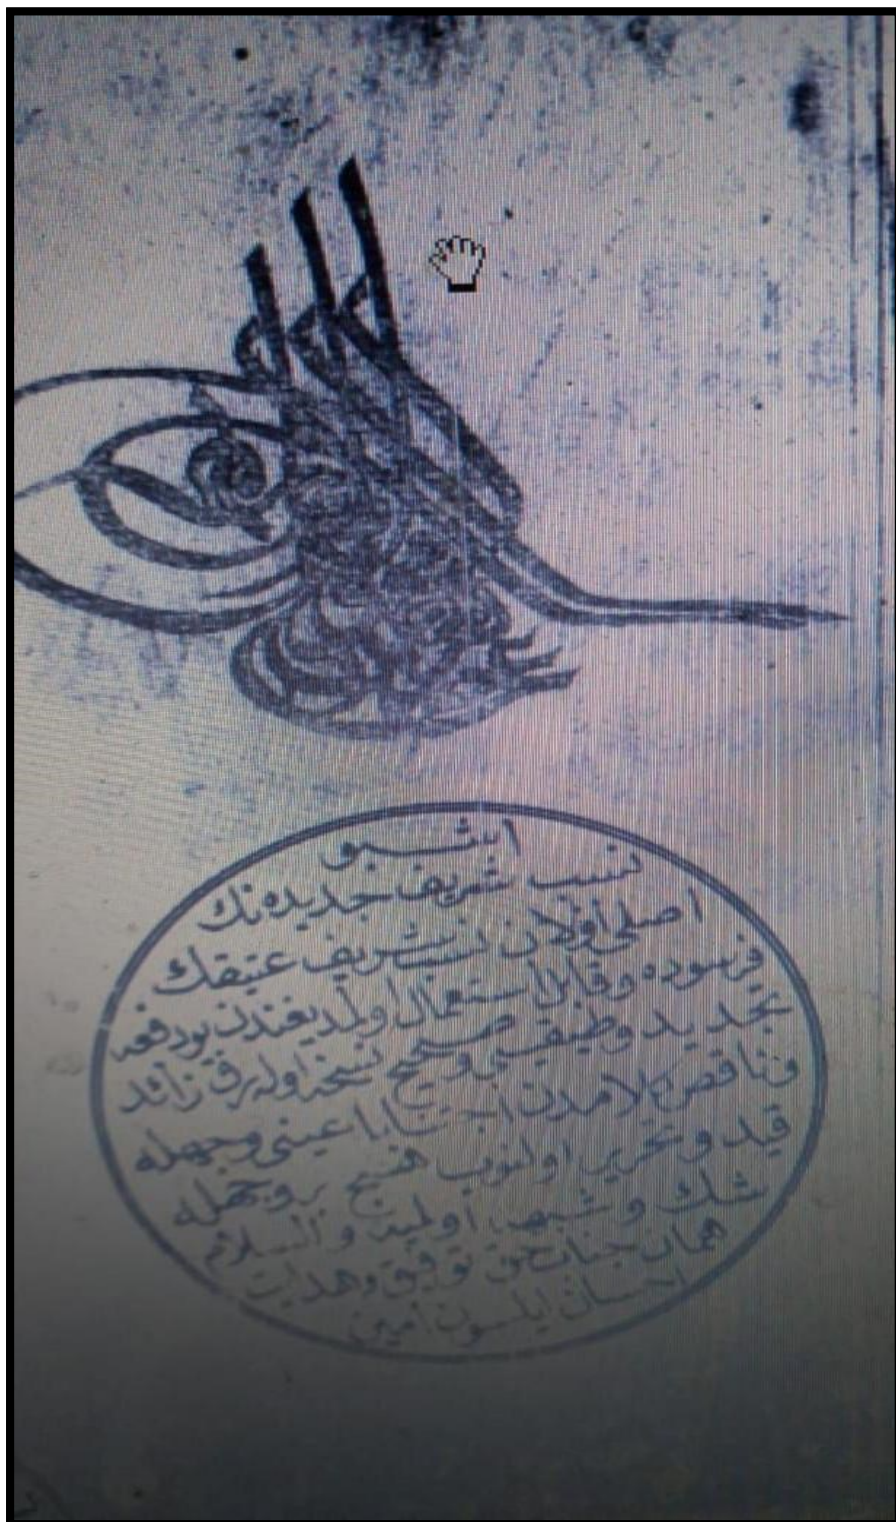 اشبو
نسب شريف جديده نك
اصلى اولان نسب شريف عتيقك
فرسوده و قابل استعمال اولمديغندن بو دفعه
تجديد و طبقى و صحيح نسخه اوله رق زائد
و ناقص كلامدن اجتنابا عينى وجهله
قيد و تحرير اولنوب هيچ بر وجهله
شك و شبهه اولميه والسلام
همان جناب حق توفيق و هدايت
احسان ايلسون امين